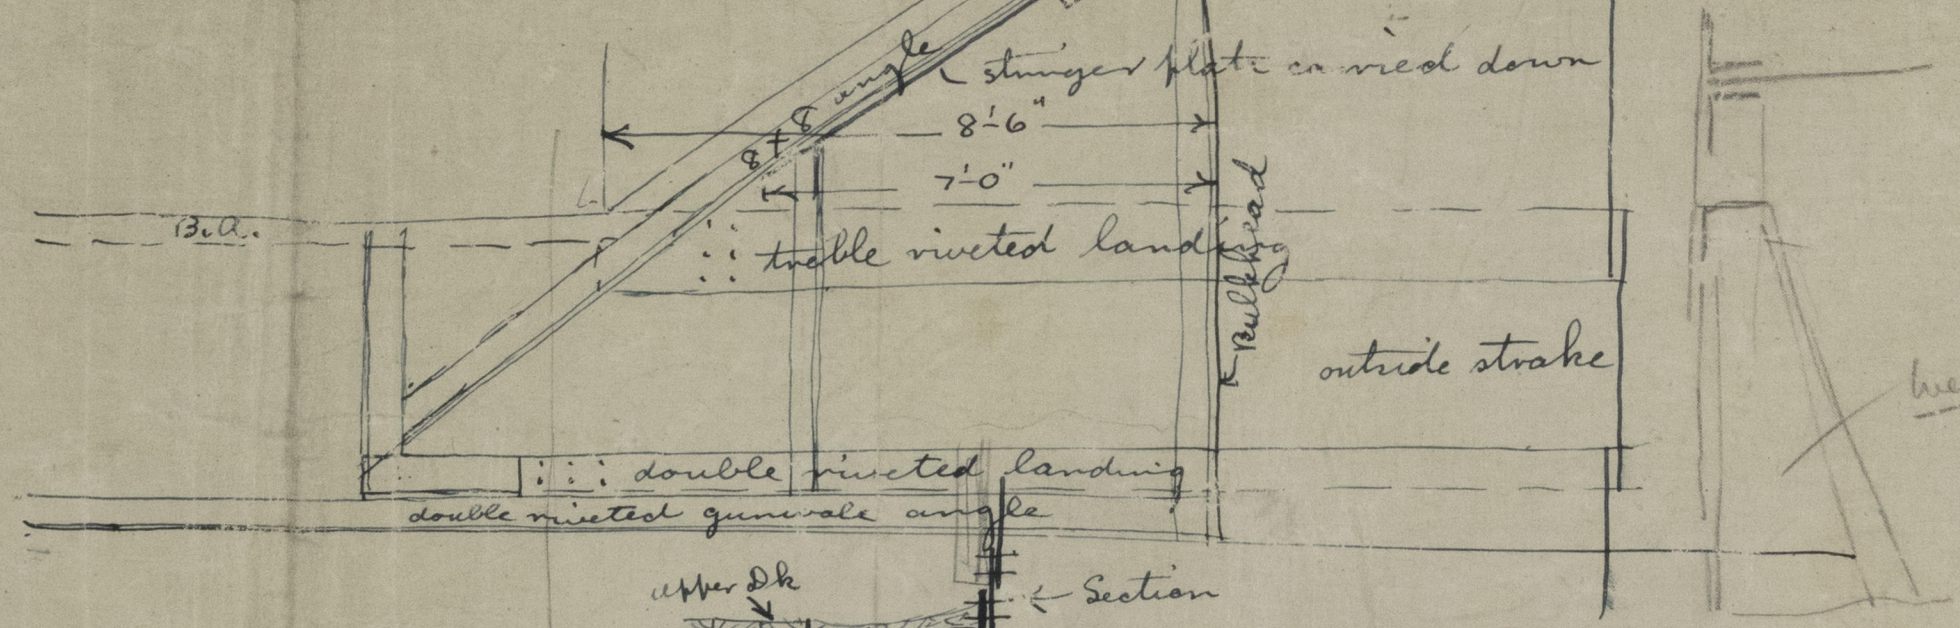 8 x 8 angle
stringer plate carried down
8'-6"
7'-0"
B.A.
treble riveted landing
Bulkhead
outside strake
double riveted landing
double riveted gunwale angle
upper Dk
Section